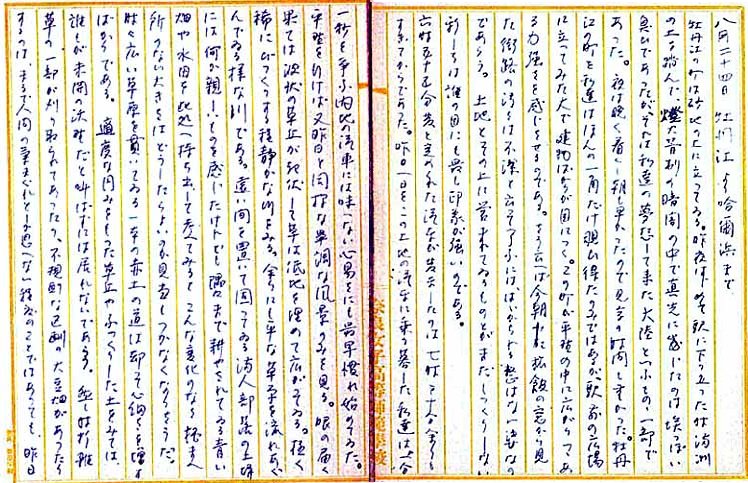 八月二十四日　牡丹江より哈爾浜まで
牡丹江の町は砂地の上に立ってゐる。昨夜はじめて駅に下り立った牡丹江
の土を踏んだ燈火管制の暗闇の中で真先に感じたのは埃っぽい
臭ひであったがそれは私達の夢想して来た大陸といふものゝ一部で
あった。夜は晩く着いて朝も早かったので見学の時間もなかった。牡丹
江の町を私達はほんの一角だけ覗き得たのみではあるが駅前の広場
に立ってみた丈で建物ばかりが目につく。この町が平野の中に広がってゐ
る力強さを感じさせるのである。さう云へば今朝方旅館の窓から見
た街路の汚さは不潔と云ってしまふにはばかられる
であらう。土地とその上に営まれてゐるものとがまだしっくりしない
新しさは誰の目にも最も印象が強いのである。
六時五十五分発と云はれた汽車が発車したのは七時三十分
すぎてからであった。昨日一日をこの土地の汽車に乗り暮した私達は一分
一秒を争ふ内地の汽車には味へない心易さにも最早慣れ始めてゐた。
平野を行けば又昨日と同様な単調な風景のみを見る。眼の届く
果ては波状の草丘が起伏して草は低地を埋めて広がってゐる。極く
稀にびっくりする程静かな川をみる。余りにも平な草原を流れあぐ
んでゐる様な川である。遠い間を置いて固ってゐる満人部落の土塀
には何か親しいものを感じたけれども隅々まで耕やされてゐる青い
畑や水田を此処へ持ち出して考へてみるとこんな変化のない極まる
所のない大きさをばどうしたらよいのか見当もつかなくなりさうだ。
時々広い草原を貫いてゐる一本の赤土の道は却って心細さを増す
ばかりである。適度な円みをもった草丘やふっくりした土をみては、
誰しも未開の沃野だと叫ばずには居れないである。
草の一部が刈り取られてあったり、不規則な区画の大豆畑があったり
するのは、まるで人間の気まぐれとしか思へない程度のことではあっても、昨日
奈良女子高等師範学校